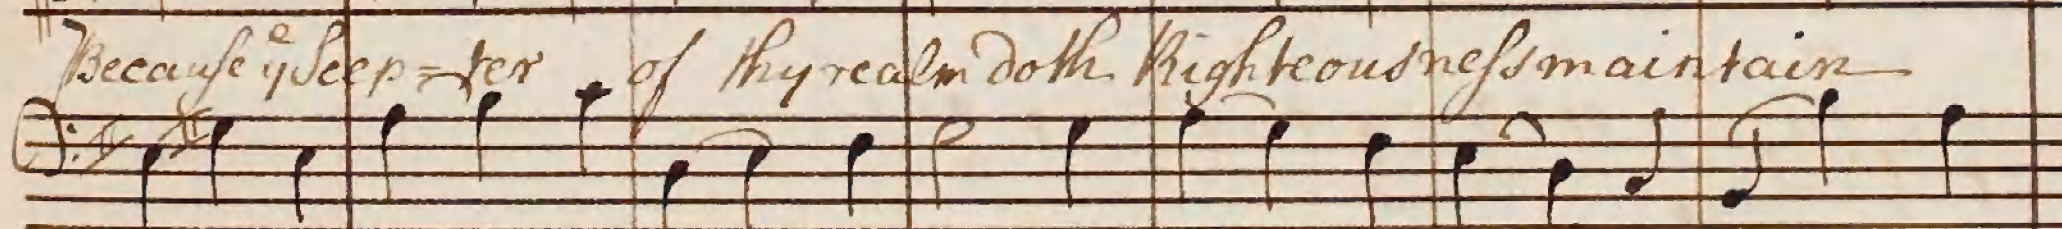 Because yͤ Scep=ter of thy realm doth Righteousneſs maintain